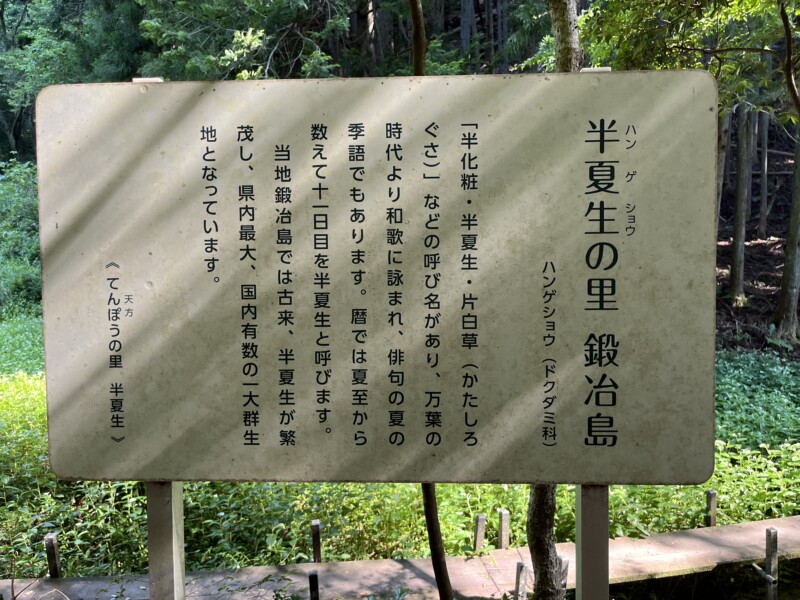 半夏生の里 鍛冶島
ハン ゲ ショウ
ハンゲショウ（ドクダミ科）
「半化粧・半夏生・片白草（かたしろ
ぐさ）」などの呼び名があり、万葉の
時代より和歌に詠まれ、俳句の夏の
季語でもあります。暦では夏至から
数えて十一日目を半夏生と呼びます。
当地鍛冶島では古来、半夏生が繁
茂し、県内最大、国内有数の一大群生
地となっています。
天方
《てんぽうの里 半夏生》